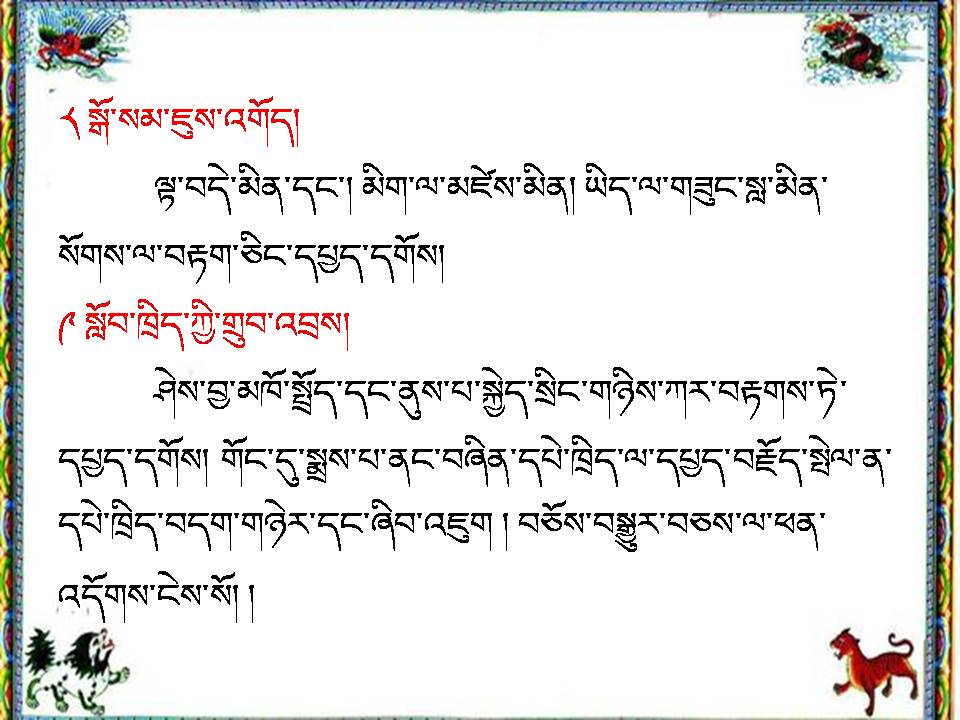 ༨ སྒོ་སམ་ཇུས་འགོད།
ལྟ་བདེ་མིན་དང་། མིག་ལ་མཛེས་མིན། ཡིད་ལ་གཟུང་སླ་མིན་
སོགས་ལ་བརྟག་ཅིང་དཔྱད་དགོས།
༩ སློབ་ཁྲིད་ཀྱི་གྲུབ་འབྲས།
ཤེས་བྱ་མཁོ་སྤྲོད་དང་ནུས་པ་སྐྱེད་སྲིང་གཉིས་ཀར་བརྟགས་ཏེ་
དཔྱད་དགོས། གོང་དུ་སྨྲས་པ་ནང་བཞིན་དཔེ་ཁྲིད་ལ་དཔྱད་བརྗོད་སྤེལ་ན་
དཔེ་ཁྲིད་བདག་གཉེར་དང་ཞིབ་འཇུག ། བཅོས་བསྒྱུར་བཅས་ལ་ཕན་
འདོགས་ངེས་སོ། །